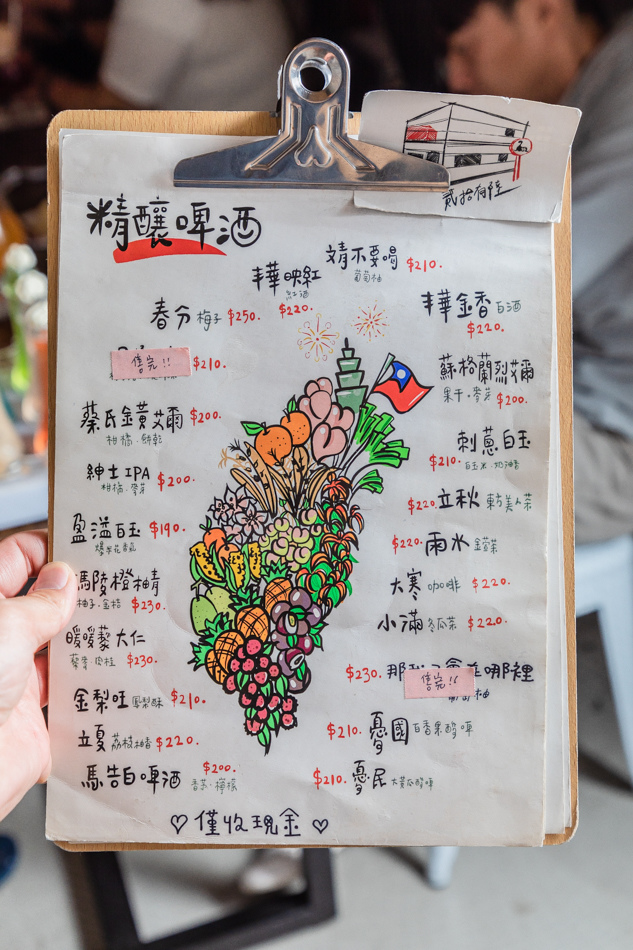 貳拾有酒
精釀啤酒
靖不要喝 $210.
葡萄柚
丰映紅
紅酒
$220.
丰金香 白酒
$220.
春分 梅子 $250.
售完!! $210.
蘇格蘭烈艾爾
果干·麥芽 $200.
蔡氏金黃艾爾 $200.
柑橘·餅乾
刺蔥白玉
$210.
白玉米·奶油香
紳士IPA $200.
柑橘·麥芽
$220. 立秋 東方美人茶
盈溢白玉 $190.
爆米花香氣
$220. 雨水 金萱茶
馮陵橙柚精
柚子·金桔 $230.
大寒 咖啡 $220.
小滿 冬瓜茶 $220.
暖暖藜大仁
藜麥·肉桂 $230.
$230. 那我
哪裡
售完!!
柚
金梨旺 鳳梨酥 $210.
立夏 荔枝柚香 $220.
$210. 憂國 百香果酸啤
馬告白啤酒 $200.
$210. 憂民 大黃瓜酸啤
♡ 僅收現金 ♡